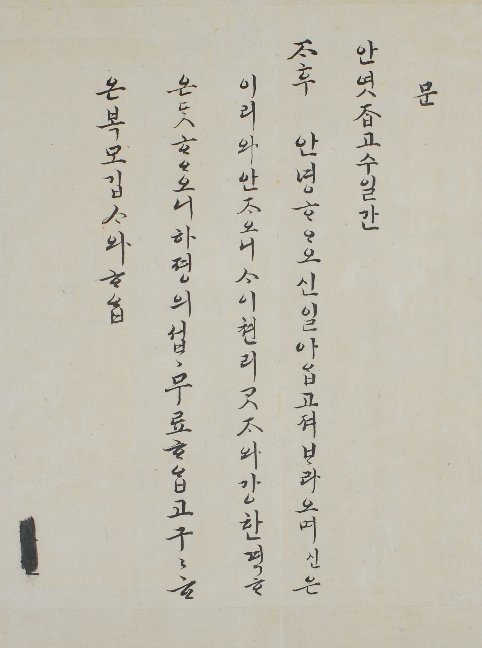 문
안엿ᄌᆞᆸ고수일간
ᄌᆞ후 안녕ᄒᆞᄋᆞ오신일아ᄋᆞᆸ고져ᄇᆞ라오며신은
이리와안ᄌᆞ오니ᄉᆞ이쳔리ᄀᆞᆺᄌᆞ와강한격ᄒᆞ
온ᄃᆞᆺᄒᆞᄋᆞ오니하졍의섭〻무료ᄒᆞᄋᆞᆸ고구〻ᄒᆞ
온복모깁ᄉᆞ와ᄒᆞᄋᆞᆸ